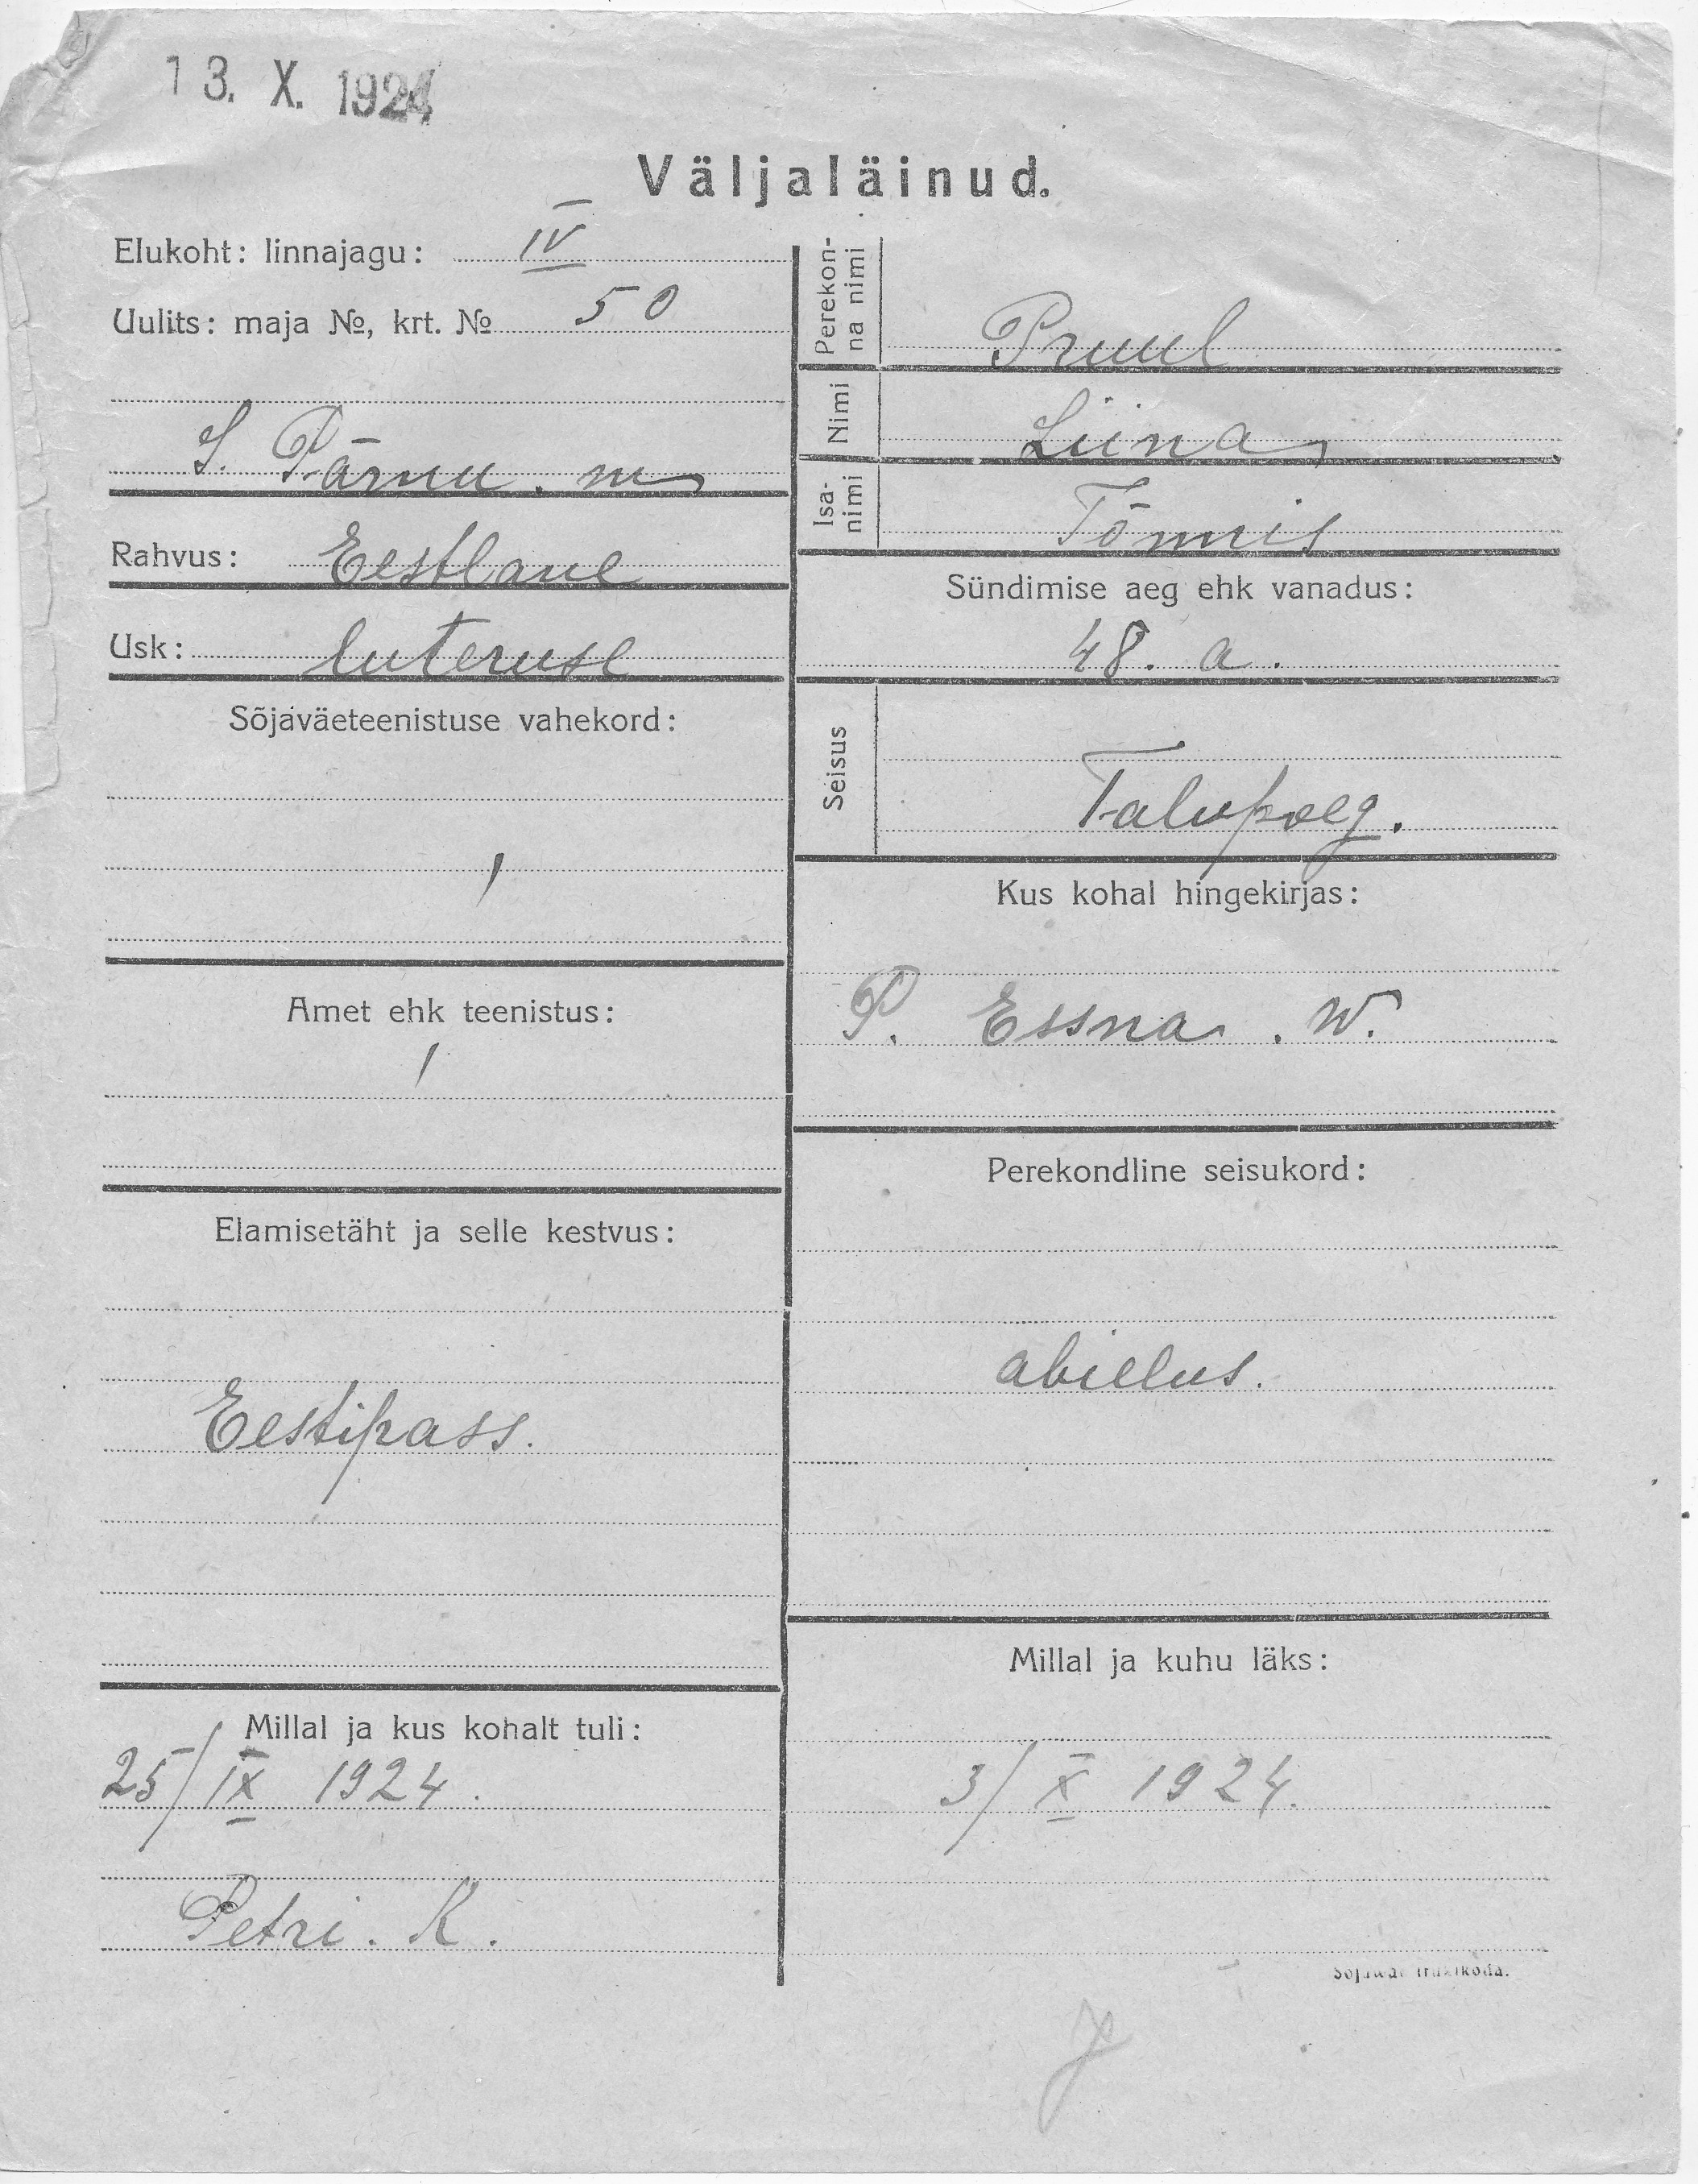 13. X. 1924
Väljaläinud.
Elukoht: linnajagu: IV
Uulits: maja №, krt. № 50
S. Pärnu. m
Rahvus: Eestlane
Usk: luteruse
Sõjaväeteenistuse vahekord:
Amet ehk teenistus:
Elamisetäht ja selle kestvus:
Eestipass.
Millal ja kus kohalt tuli:
25/IX 1924.
Petri. K.
Perekon-
na nimi
Pruul
Nimi Liina
Isa-
nimi
Tõnnis
Sündimise aeg ehk vanadus:
48. a.
Seisus
Talupoeg.
Kus kohal hingekirjas:
P. Essna. W.
Perekondline seisukord:
abielus.
Millal ja kuhu läks:
3/X 1924.
Sõjawäe trükikoda.